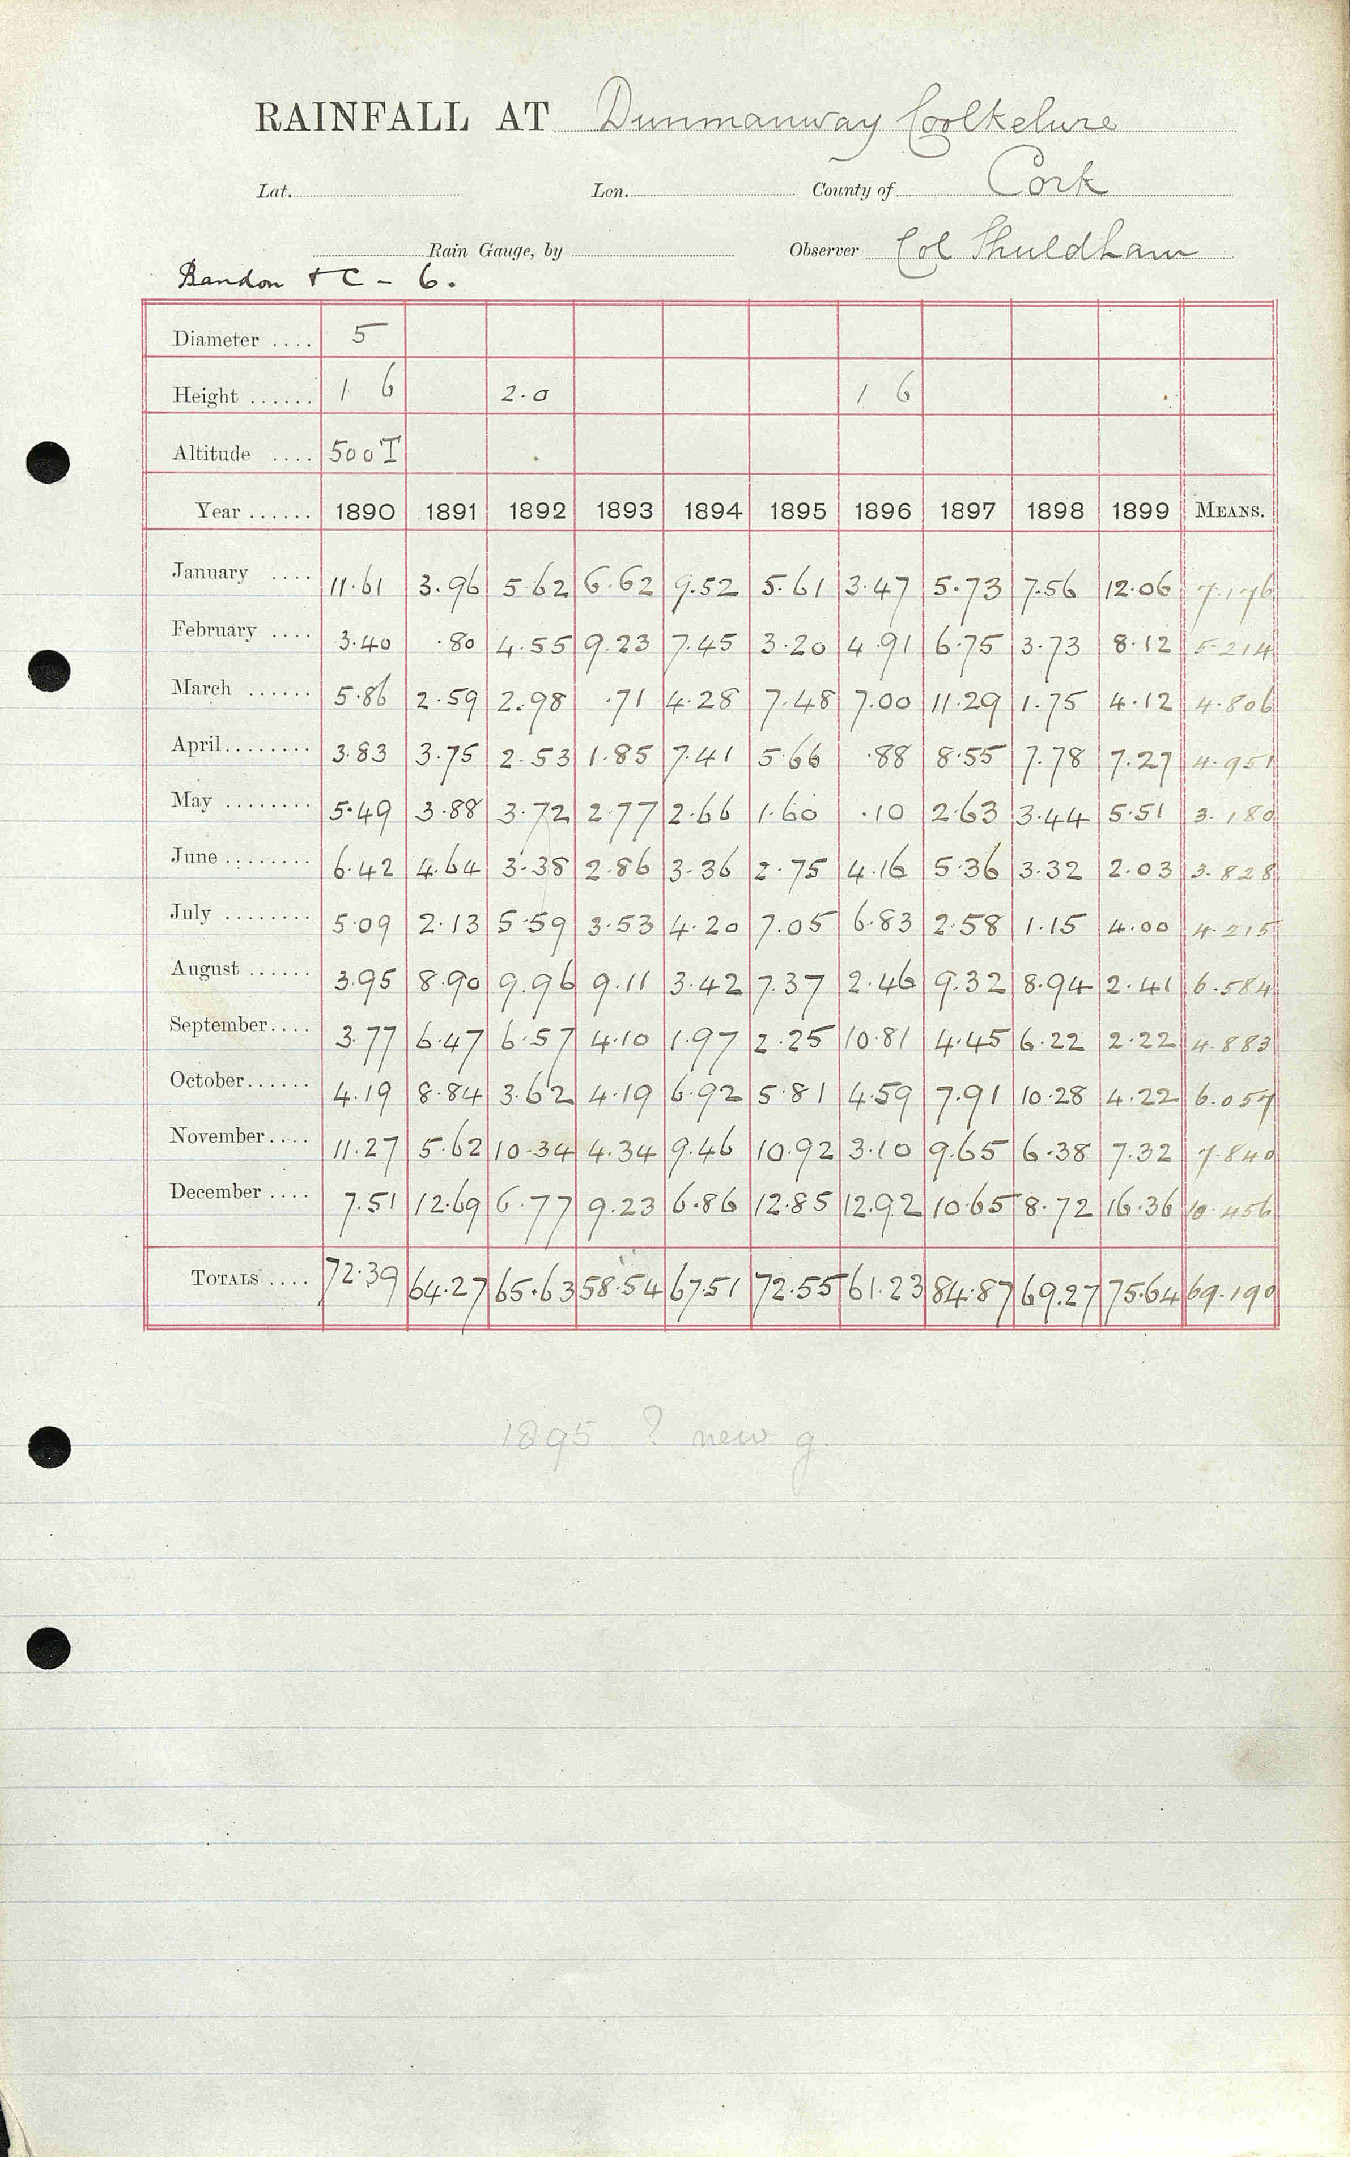 RAINFALL AT Dunmanway Coolkelure
Lat. Lon. County of Cork
Rain Gauge, by Observer Col Shuldham
Bandon + C - 6.
Diameter .... 5
Height ...... 1 6 2.0 1 6
Altitude .... 500T
Year ...... 1890 1891 1892 1893 1894 1895 1896 1897 1898 1899 MEANS.
January .... 11.61 3.96 5.62 6.62 9.52 5.61 3.47 5.73 7.56 12.06 7.176
February .... 3.40 .80 4.55 9.23 7.45 3.20 4.91 6.75 3.73 8.12 5.214
March ...... 5.86 2.59 2.98 .71 4.28 7.48 7.00 11.29 1.75 4.12 4.806
April ........ 3.83 3.75 2.53 1.85 7.41 5.66 .88 8.55 7.78 7.27 4.951
May ........ 5.49 3.88 3.72 2.77 2.66 1.60 .10 2.63 3.44 5.51 3.180
June ........ 6.42 4.64 3.38 2.86 3.36 2.75 4.16 5.36 3.32 2.03 3.828
July ........ 5.09 2.13 5.59 3.53 4.20 7.05 6.83 2.58 1.15 4.00 4.215
August ...... 3.95 8.90 9.96 9.11 3.42 7.37 2.46 9.32 8.94 2.41 6.584
September.... 3.77 6.47 6.57 4.10 1.97 2.25 10.81 4.45 6.22 2.22 4.883
October...... 4.19 8.84 3.62 4.19 6.92 5.81 4.59 7.91 10.28 4.22 6.057
November.... 11.27 5.62 10.34 4.34 9.46 10.92 3.10 9.65 6.38 7.32 7.840
December .... 7.51 12.69 6.77 9.23 6.86 12.85 12.92 10.65 8.72 16.36 10.456
TOTALS .... 72.39 64.27 65.63 58.54 67.51 72.55 61.23 84.87 69.27 75.64 69.190
1895 ? new g.